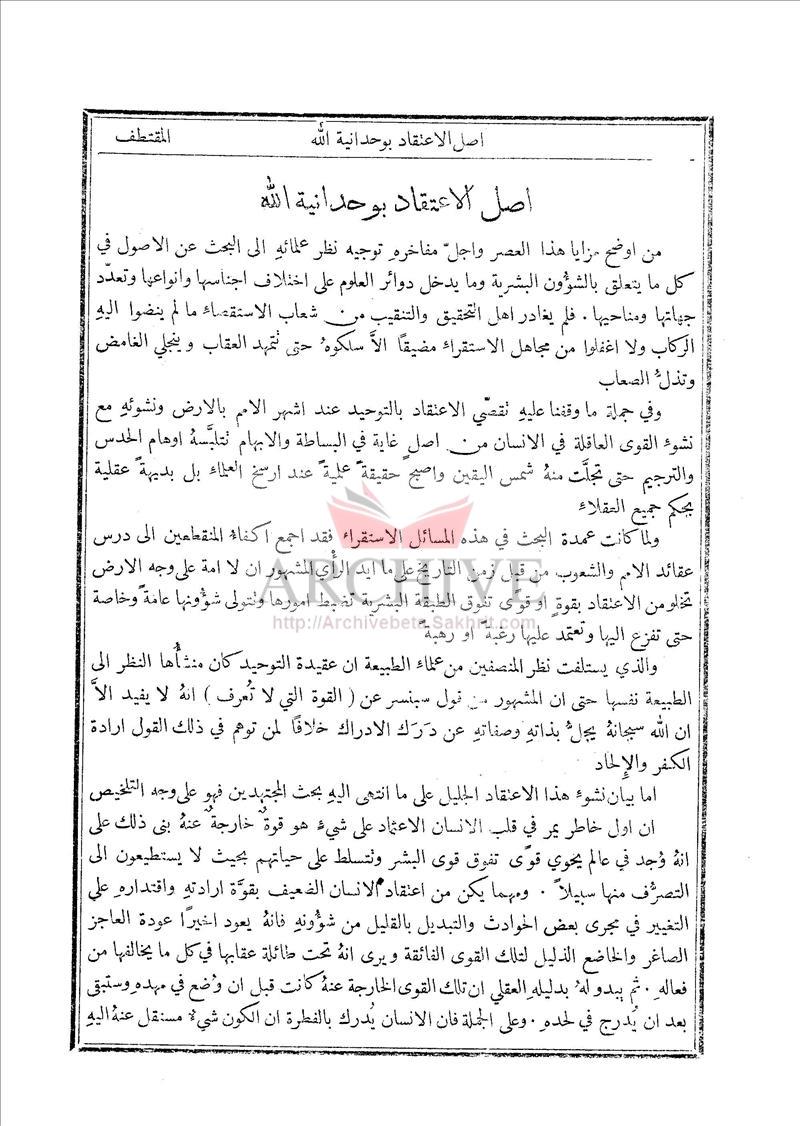 اصل الاعتقاد بوحدانية الله
المقتطف
اصل الاعتقاد بوحدانية الله
من اوضح مزايا هذا العصر واجلّ مفاخرهِ توجيه نظر علمائهِ الى البحث عن الاصول في
كل ما يتعلق بالشؤُون البشرية وما يدخل دوائر العلوم على اختلاف اجناسها وانواعها وتعدّد
جهاتها ومناحيها . فلم يغادر اهل التحقيق والتنقيب من شعاب الاستقصاء ما لم ينضوا اليهِ
الركاب ولا اغفلوا من مجاهل الاستقراء مضيقًا الاَّ سلكوهُ حتى تتمهد العقاب وينجلي الغامض
وتذلُّ الصعاب
وفي جملة ما وقفنا عليهِ تقصّي الاعتقاد بالتوحيد عند اشهر الامم بالارض ونشوئهِ مع
نشوءِ القوى العاقلة في الانسان من اصل غاية في البساطة والابهام تتلبَّسهُ اوهام الحدس
والترجيم حتى تجلَّت منهُ شمس اليقين واصبح حقيقةً علميةً عند ارسخ العلماء بل بديهةً عقلية
بحكم جميع العقلاء
ولما كانت عمدة البحث في هذه المسائل الاستقراء فقد اجمع اكفاءُ المنقطعين الى درس
عقائد الامم والشعوب من قبل زمن التاريخ على ما ايد الرأْي المشهور ان لا امة على وجه الارض
تخلو من الاعتقاد بقوةٍ او قوًى تفوق الطبقة البشرية تضبط امورها وتتولى شؤُونها عامةً وخاصة
حتى تفزع اليها وتعتمد عليها رغبةً او رهبةً
والذي يستلفت نظر المنصفين من علماء الطبيعة ان عقيدة التوحيد كان منشأُها النظر الى
الطبيعة نفسها حتى ان المشهور من قول سبنسر عن ( القوة التي لا تُعرف ) انهُ لا يفيد الاَّ
ان الله سبحانهُ يجلُّ بذاتهِ وصفاتهِ عن دَرَك الادراك خلافًا لمن توهم في ذلك القول ارادة
الكفر والإِلحاد
اما بيان نشوءِ هذا الاعتقاد الجليل على ما انتهى اليهِ بحث المجتهدين فهو على وجه التلخيص
ان اول خاطر يمر في قلب الانسان الاعتماد على شيءٍ هو قوةٌ خارجةٌ عنهُ بنى ذلك على
انهُ وُجد في عالم يحوي قوًى تفوق قوى البشر وتتسلط على حياتهم بحيث لا يستطيعون الى
التصرُّف منها سبيلاً . ومهما يكن من اعتقاد الانسان الضعيف بقوَّة ارادتهِ واقتداره على
التغيير في مجرى بعض الحوادث والتبديل بالقليل من شؤُونهِ فانهُ يعود اخيرًا عودة العاجز
الصاغر والخاضع الذليل لتلك القوى الفائقة ويرى انهُ تحت طائلة عقابها في كل ما يخالفها من
فعالهِ . ثم يبدو لهُ بدليلهِ العقلي ان تلك القوى الخارجة عنهُ كانت قبل ان وُضع في مهدهِ وستبقى
بعد ان يُدرج في لحده . وعلى الجملة فان الانسان يُدرك بالفطرة ان الكون شيءٌ مستقل عنهُ اليهِ
ARCHIVE
http://Archivebeta.Sakhrit.com